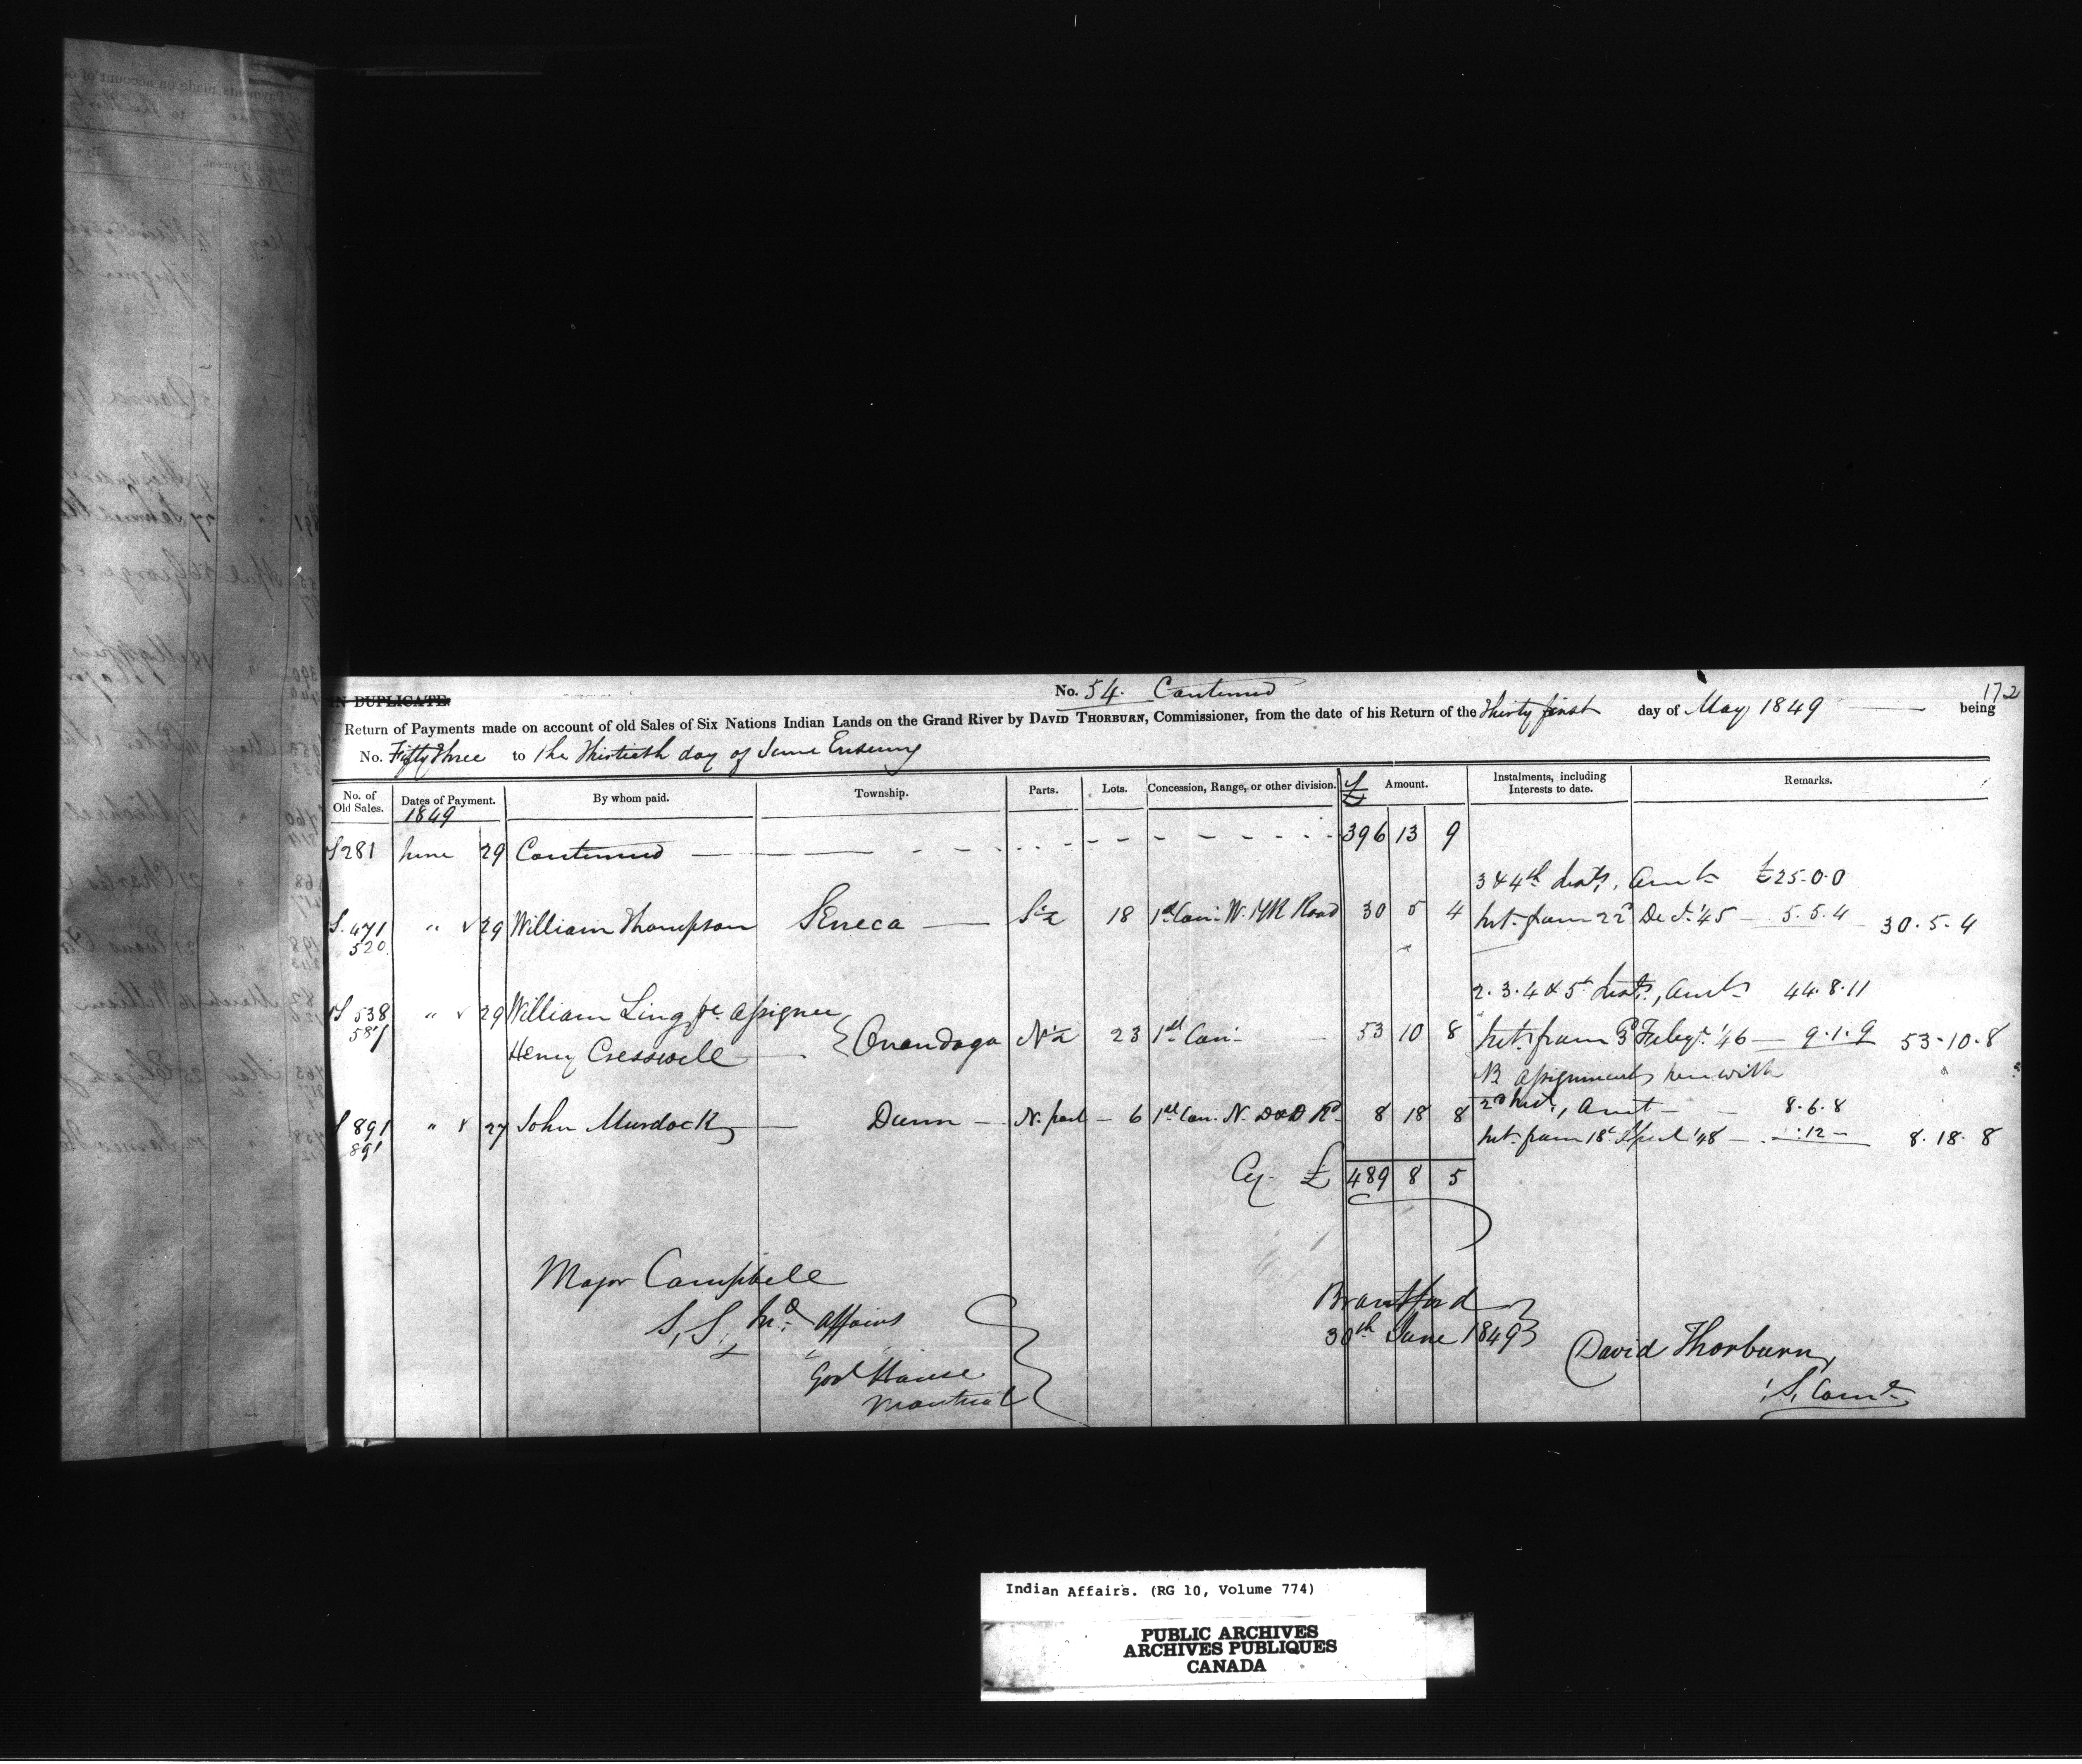 172
IN DUPLICATE.
No. 54. Continued
Return of Payments made on account of old Sales of Six Nations Indian Lands on the Grand River by DAVID THORBURN, Commissioner, from the date of his Return of the Thirty first day of May 1849 being
No. Fifty three to the Thirtieth day of June Ensuing
No. of Old Sales. Dates of Payment. By whom paid. Township. Parts. Lots. Concession, Range, or other division. £ Amount. Instalments, including Interests to date. Remarks.
1849
S 281 June 29 Continued 396 13 9
3 & 4th Insts, Amts £25-0-0
S. 471 " 29 William Thompson Seneca S ½ 18 1st Con. W. PR Road 30 5 4 Int. from 22d Dec. '45 5.5.4 30.5.4
520
2. 3. 4 & 5th Insts, Amts 44.8.11
S 538 " 29 William Ling pr. assignee
587 Henry Cresswell Onondaga N ½ 23 1st Con. 53 10 8 Int. from 3d Feby. '46 9.1.9 53-10-8
NB assignments herewith
2nd Inst, Amt 8.6.8
S 891 " 27 John Murdock Dunn N. part 6 1st Con. N. D&D Rd 8 18 8
891 Int. from 18th April '48 :12 8.18.8
Cy. £ 489 8 5
Major Campbell
S, S, Ind affairs
Govt House
Montreal
Brantford
30th June 1849
David Thorburn,
S, Comr
Indian Affairs. (RG 10, Volume 774)
PUBLIC ARCHIVES
ARCHIVES PUBLIQUES
CANADA